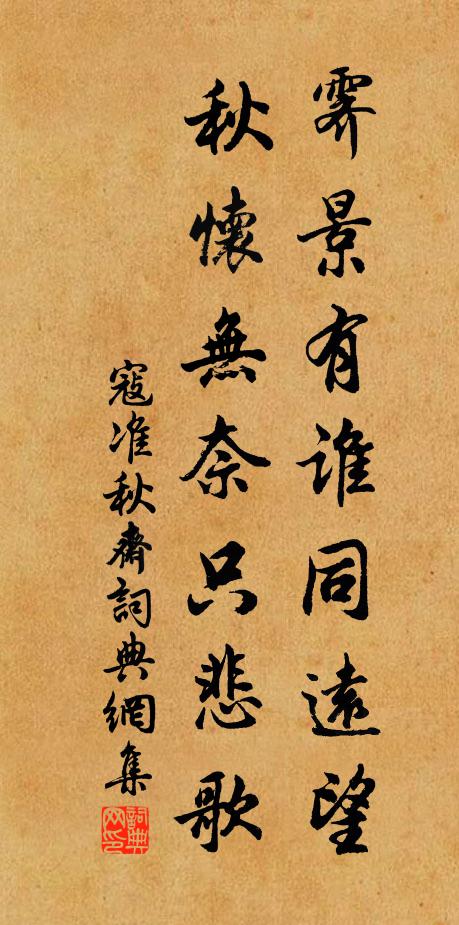 霽景有誰同遠望
秋懷無奈只悲歌
寇准秋齋詞典網集
詞典网印